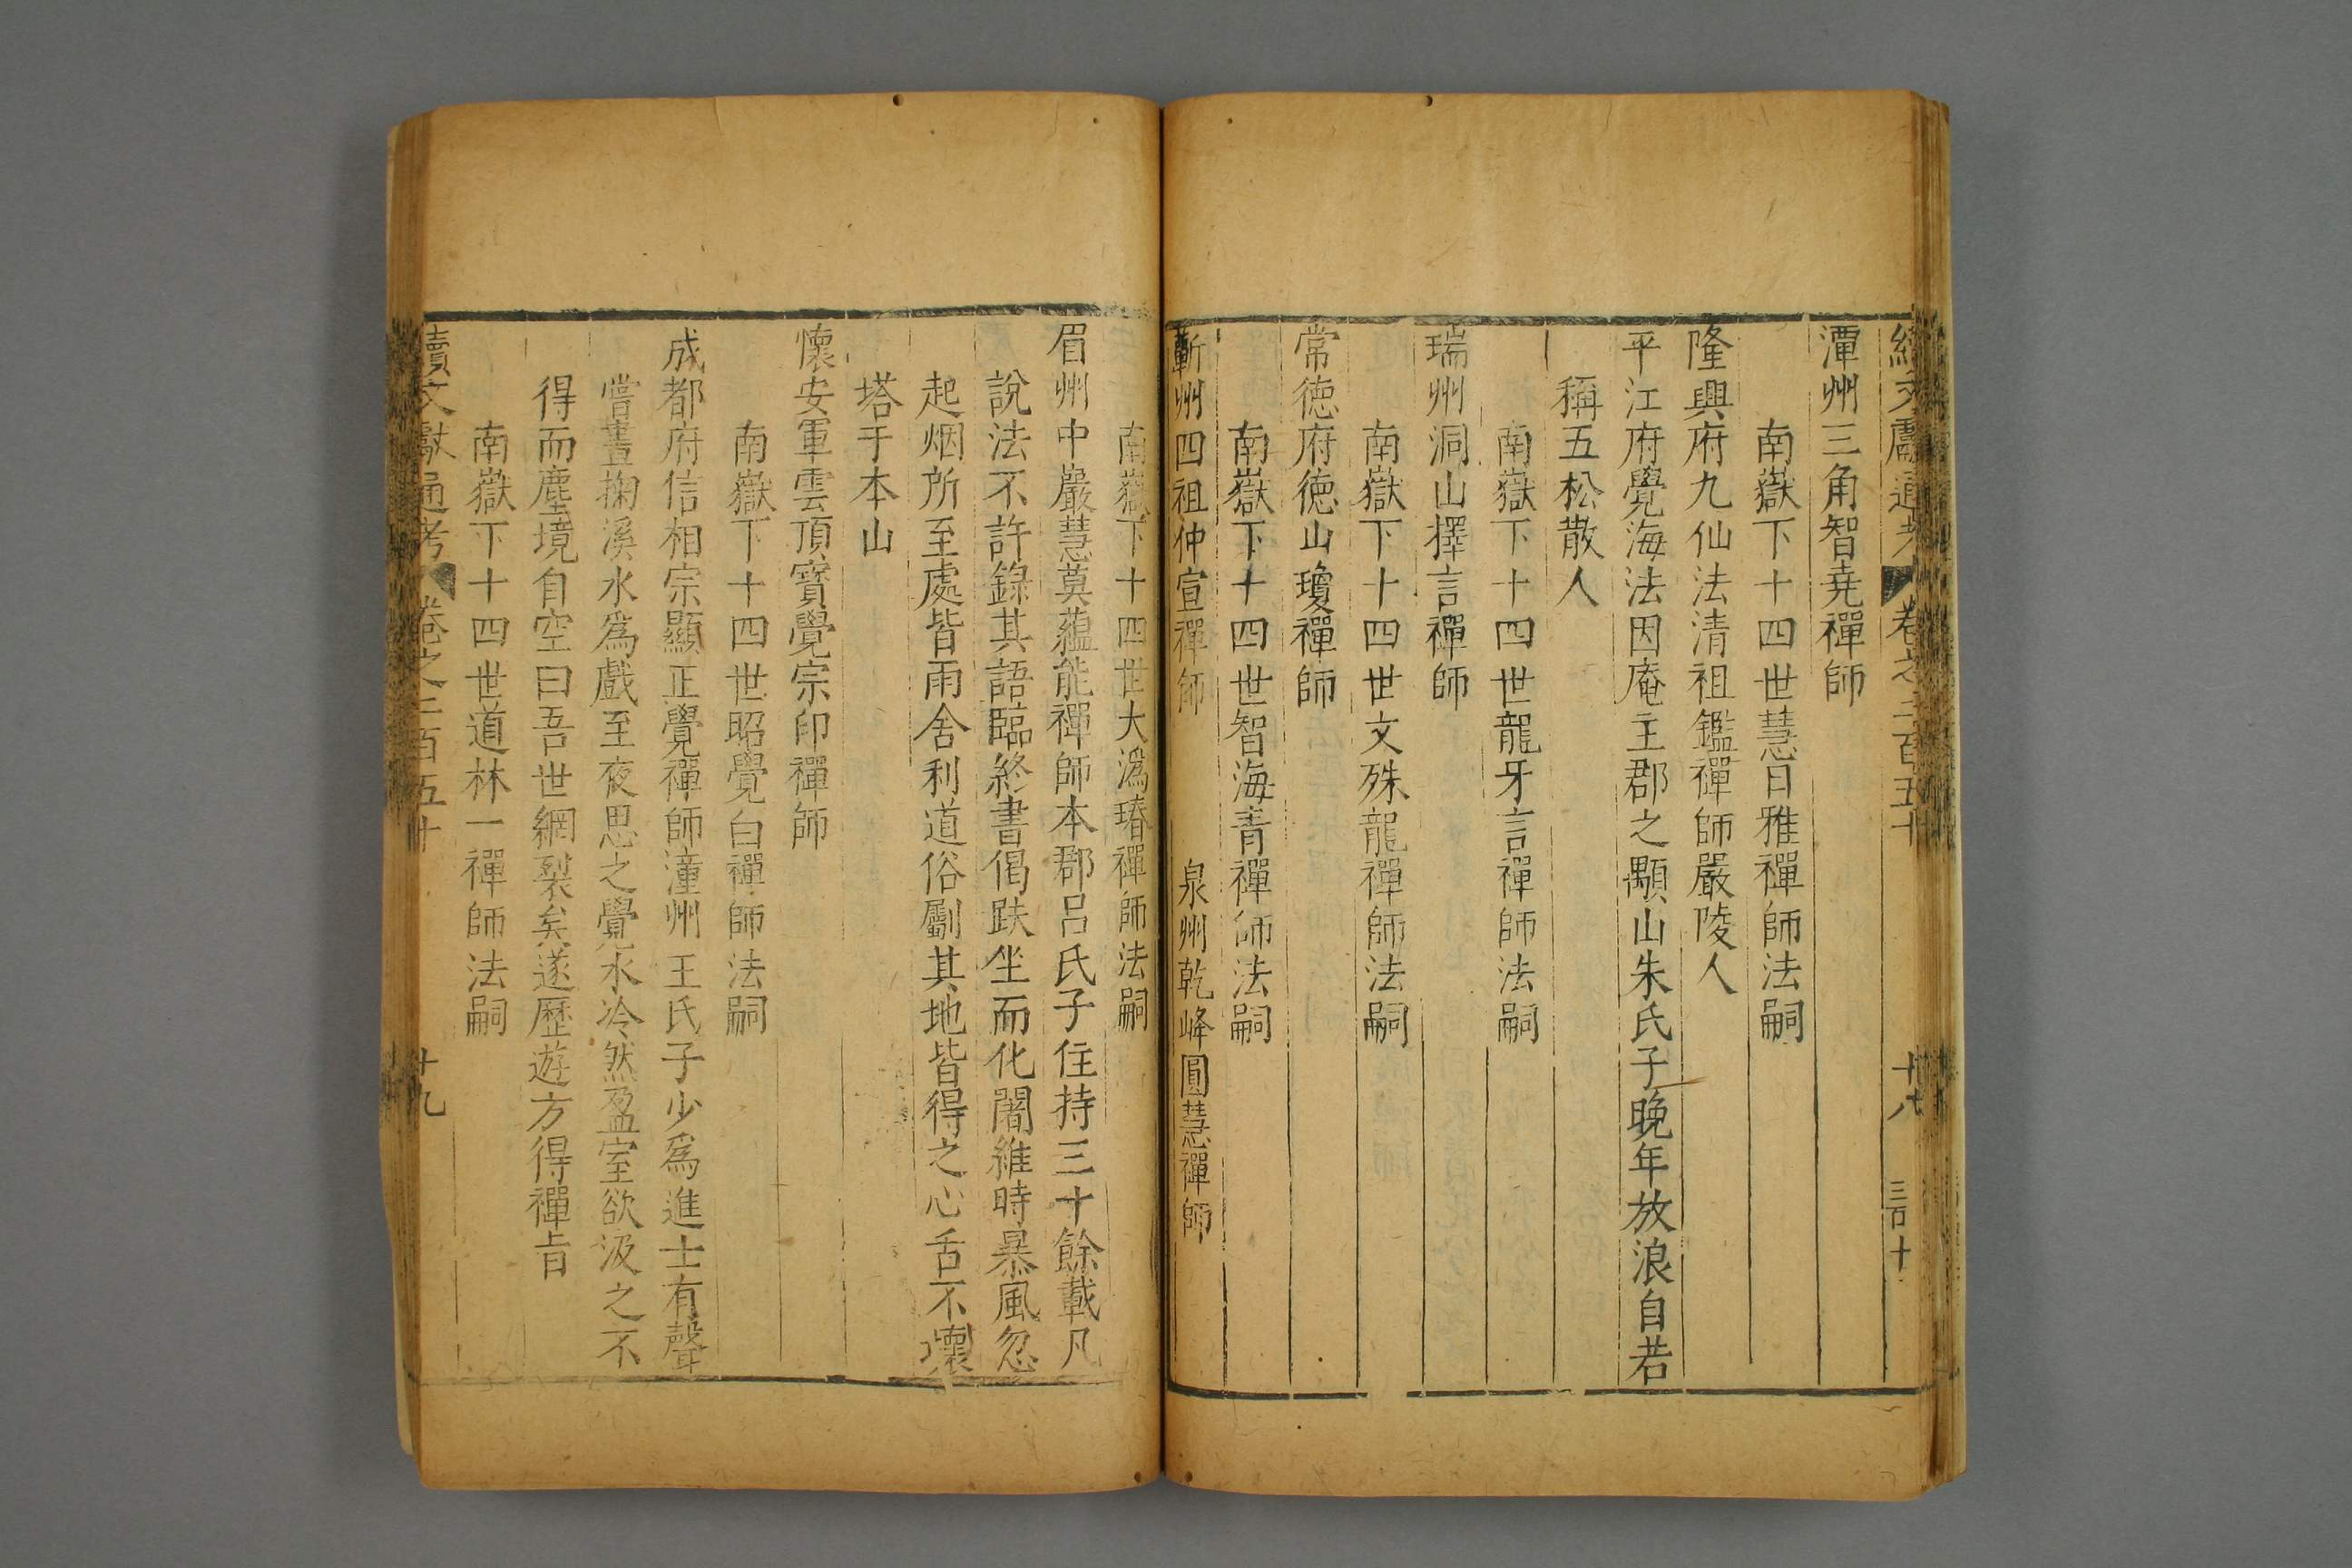 續文獻通考 卷之二百五十 十八 三百十
潭州三角智堯禪師
南嶽下十四世慧日雅禪師法嗣
隆興府九仙法清祖鑑禪師嚴陵人
平江府覺海法因庵主郡之顒山朱氏子晚年放浪自若
稱五松散人
南嶽下十四世龍牙言禪師法嗣
瑞州洞山擇言禪師
南嶽下十四世文殊龍禪師法嗣
常德府德山瓊禪師
南嶽下十四世智海青禪師法嗣
蘄州四祖仲宣禪師 泉州乾峰圓慧禪師
南嶽下十四世大溈瑃禪師法嗣
眉州中巖慧莫蘊能禪師本郡呂氏子住持三十餘載凡
說法不許錄其語臨終書偈趺坐而化闍維時暴風忽
起烟所至處皆雨舍利道俗斸其地皆得之心舌不壞
塔于本山
懷安軍雲頂寶覺宗印禪師
南嶽下十四世昭覺白禪師法嗣
成都府信相宗顯正覺禪師潼州王氏子少爲進士有聲
嘗晝掬溪水爲戲至夜思之覺水泠然盈室欲汲之不
得而塵境自空曰吾世網裂矣遂歷遊方得禪旨
南嶽下十四世道林一禪師法嗣
續文獻通考 卷之二百五十 十九